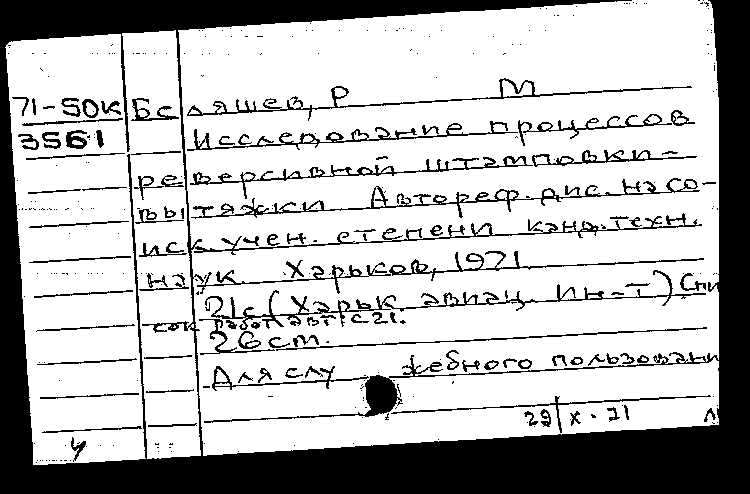 71-50к Бе ляшев, Р М
3561 Исследование процессов
реверсивной штамповки-
вытяжки Автореф. дис. на со-
иск. учен. степени канд. техн.
наук. Харьков, 1971
21с (Харьк. авиац. ин-т) Спи
сок работ авт. с 21.
26 cm.
Для слу жебного пользовани
29/X-71 Л